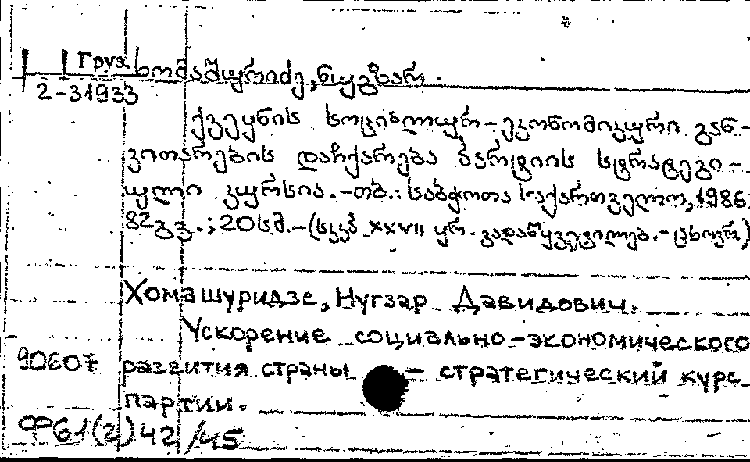 Груз.
ხომაშურიძე, ნუგზარ.
2-31933
ქვეყნის სოციალურ-ეკონომიკური გან-
ვითარების დაჩქარება პარტიის სტრატეგი-
ული კურსია. -თბ.: საბჭოთა საქართველო, 1986.
82გვ.; 20სმ.-(სკკპ XXVII ყრ. გადაწყვეტილებ.-ცხოვრ.)
Хомашуридзе, Нугзар Давидович.
Ускорение социально-экономического
90607 развития страны - стратегический курс
партии.
Ф61(2)42/45